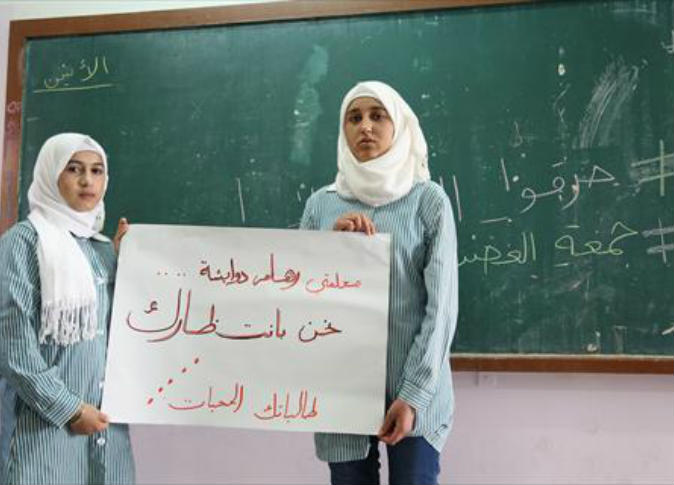 الأثنين
# حرقوا ال
# جمعة الغضب
معلمتي رهام دوابشة ....
نحن بانتظارك
طالباتك المحبات